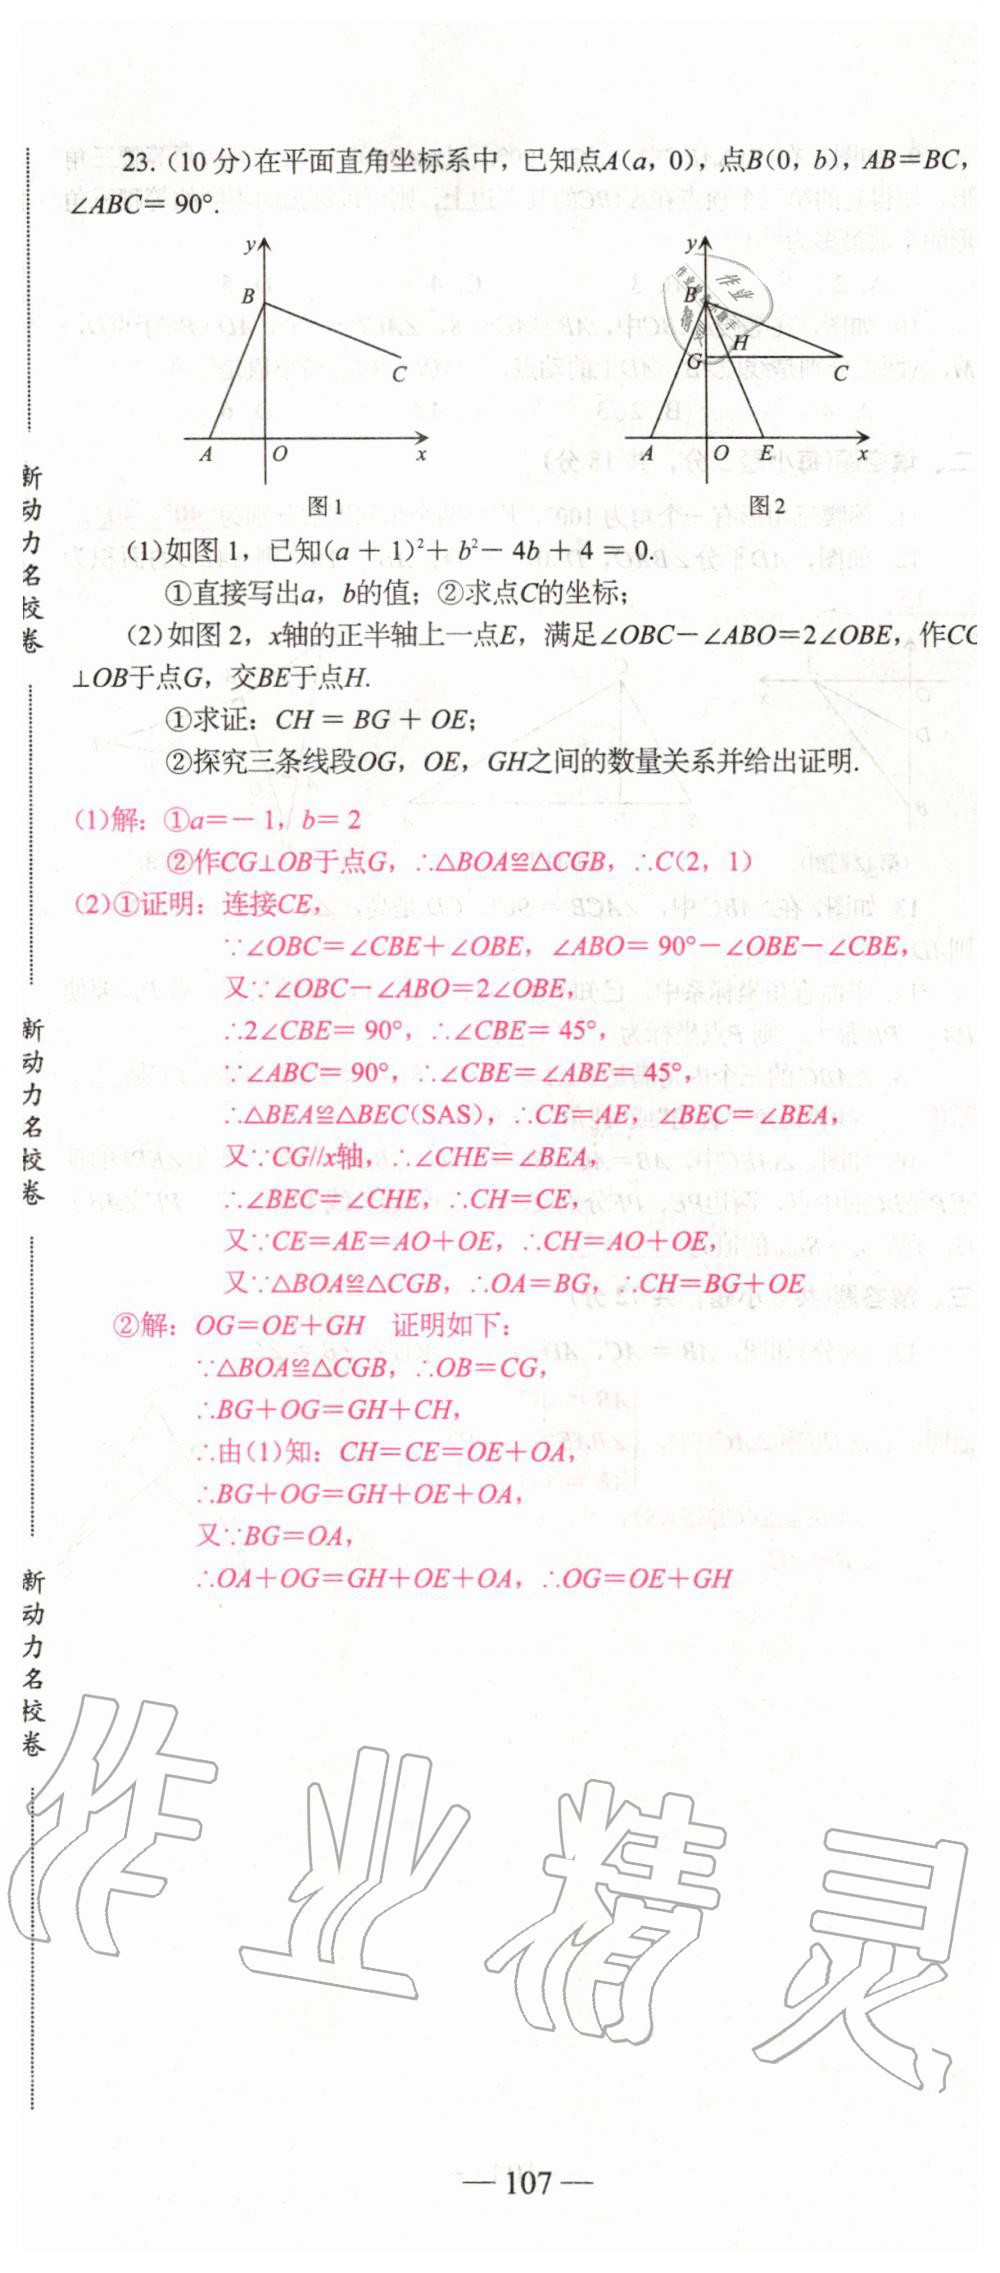 23. (10 分)在平面直角坐标系中，已知点A(a，0)，点B(0，b)，AB＝BC，
∠ABC＝90°.
y
B
C
A
O
x
图1
y
B
H
G
C
A
O
E
x
图2
(1)如图 1，已知(a + 1)²+ b²－ 4b + 4 = 0.
①直接写出a，b的值；②求点C的坐标；
(2)如图 2，x轴的正半轴上一点E，满足∠OBC－∠ABO＝2∠OBE，作CG
⊥OB于点G，交BE于点H.
①求证：CH = BG + OE；
②探究三条线段OG，OE，GH之间的数量关系并给出证明.
(1)解：①a＝－1，b＝2
②作CG⊥OB于点G，∴△BOA≌△CGB，∴C(2，1)
(2)①证明：连接CE，
∵∠OBC＝∠CBE＋∠OBE，∠ABO＝90°－∠OBE－∠CBE，
又∵∠OBC－∠ABO＝2∠OBE，
∴2∠CBE＝90°，∴∠CBE＝45°，
∵∠ABC＝90°，∴∠CBE＝∠ABE＝45°，
∴△BEA≌△BEC(SAS)，∴CE＝AE，∠BEC＝∠BEA，
又∵CG//x轴，∴∠CHE＝∠BEA，
∴∠BEC＝∠CHE，∴CH＝CE，
又∵CE＝AE＝AO＋OE，∴CH＝AO＋OE，
又∵△BOA≌△CGB，∴OA＝BG，∴CH＝BG＋OE
②解：OG＝OE＋GH　证明如下：
∵△BOA≌△CGB，∴OB＝CG，
∴BG＋OG＝GH＋CH，
∴由(1)知：CH＝CE＝OE＋OA，
∴BG＋OG＝GH＋OE＋OA，
又∵BG＝OA，
∴OA＋OG＝GH＋OE＋OA，∴OG＝OE＋GH
新动力名校卷
新动力名校卷
新动力名校卷
作业精灵
— 107 —